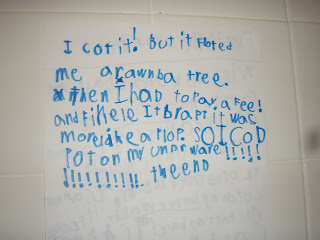 I cot it! But it floted
me arawnba tree.
Then I had to pay a fee!
and finele It brapt it was
more like a flop. SO I COD
Pot on my undrware!!!!!
!!!!!!!!!!.. the end